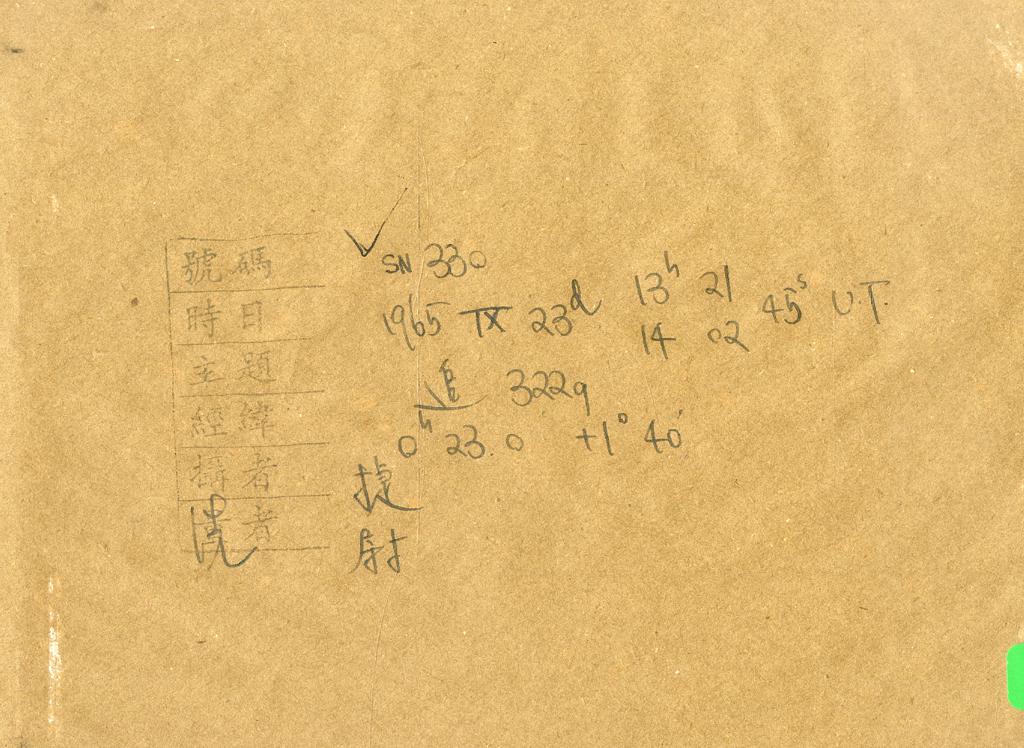 號碼 ✓ SN 330
時日 1965 IX 23ᵈ 13ʰ 21 45ˢ U.T.
14 02
主題 追 3229
經緯 0ʰ 23.0 +1° 40'
攝者 捷
洗者 尉